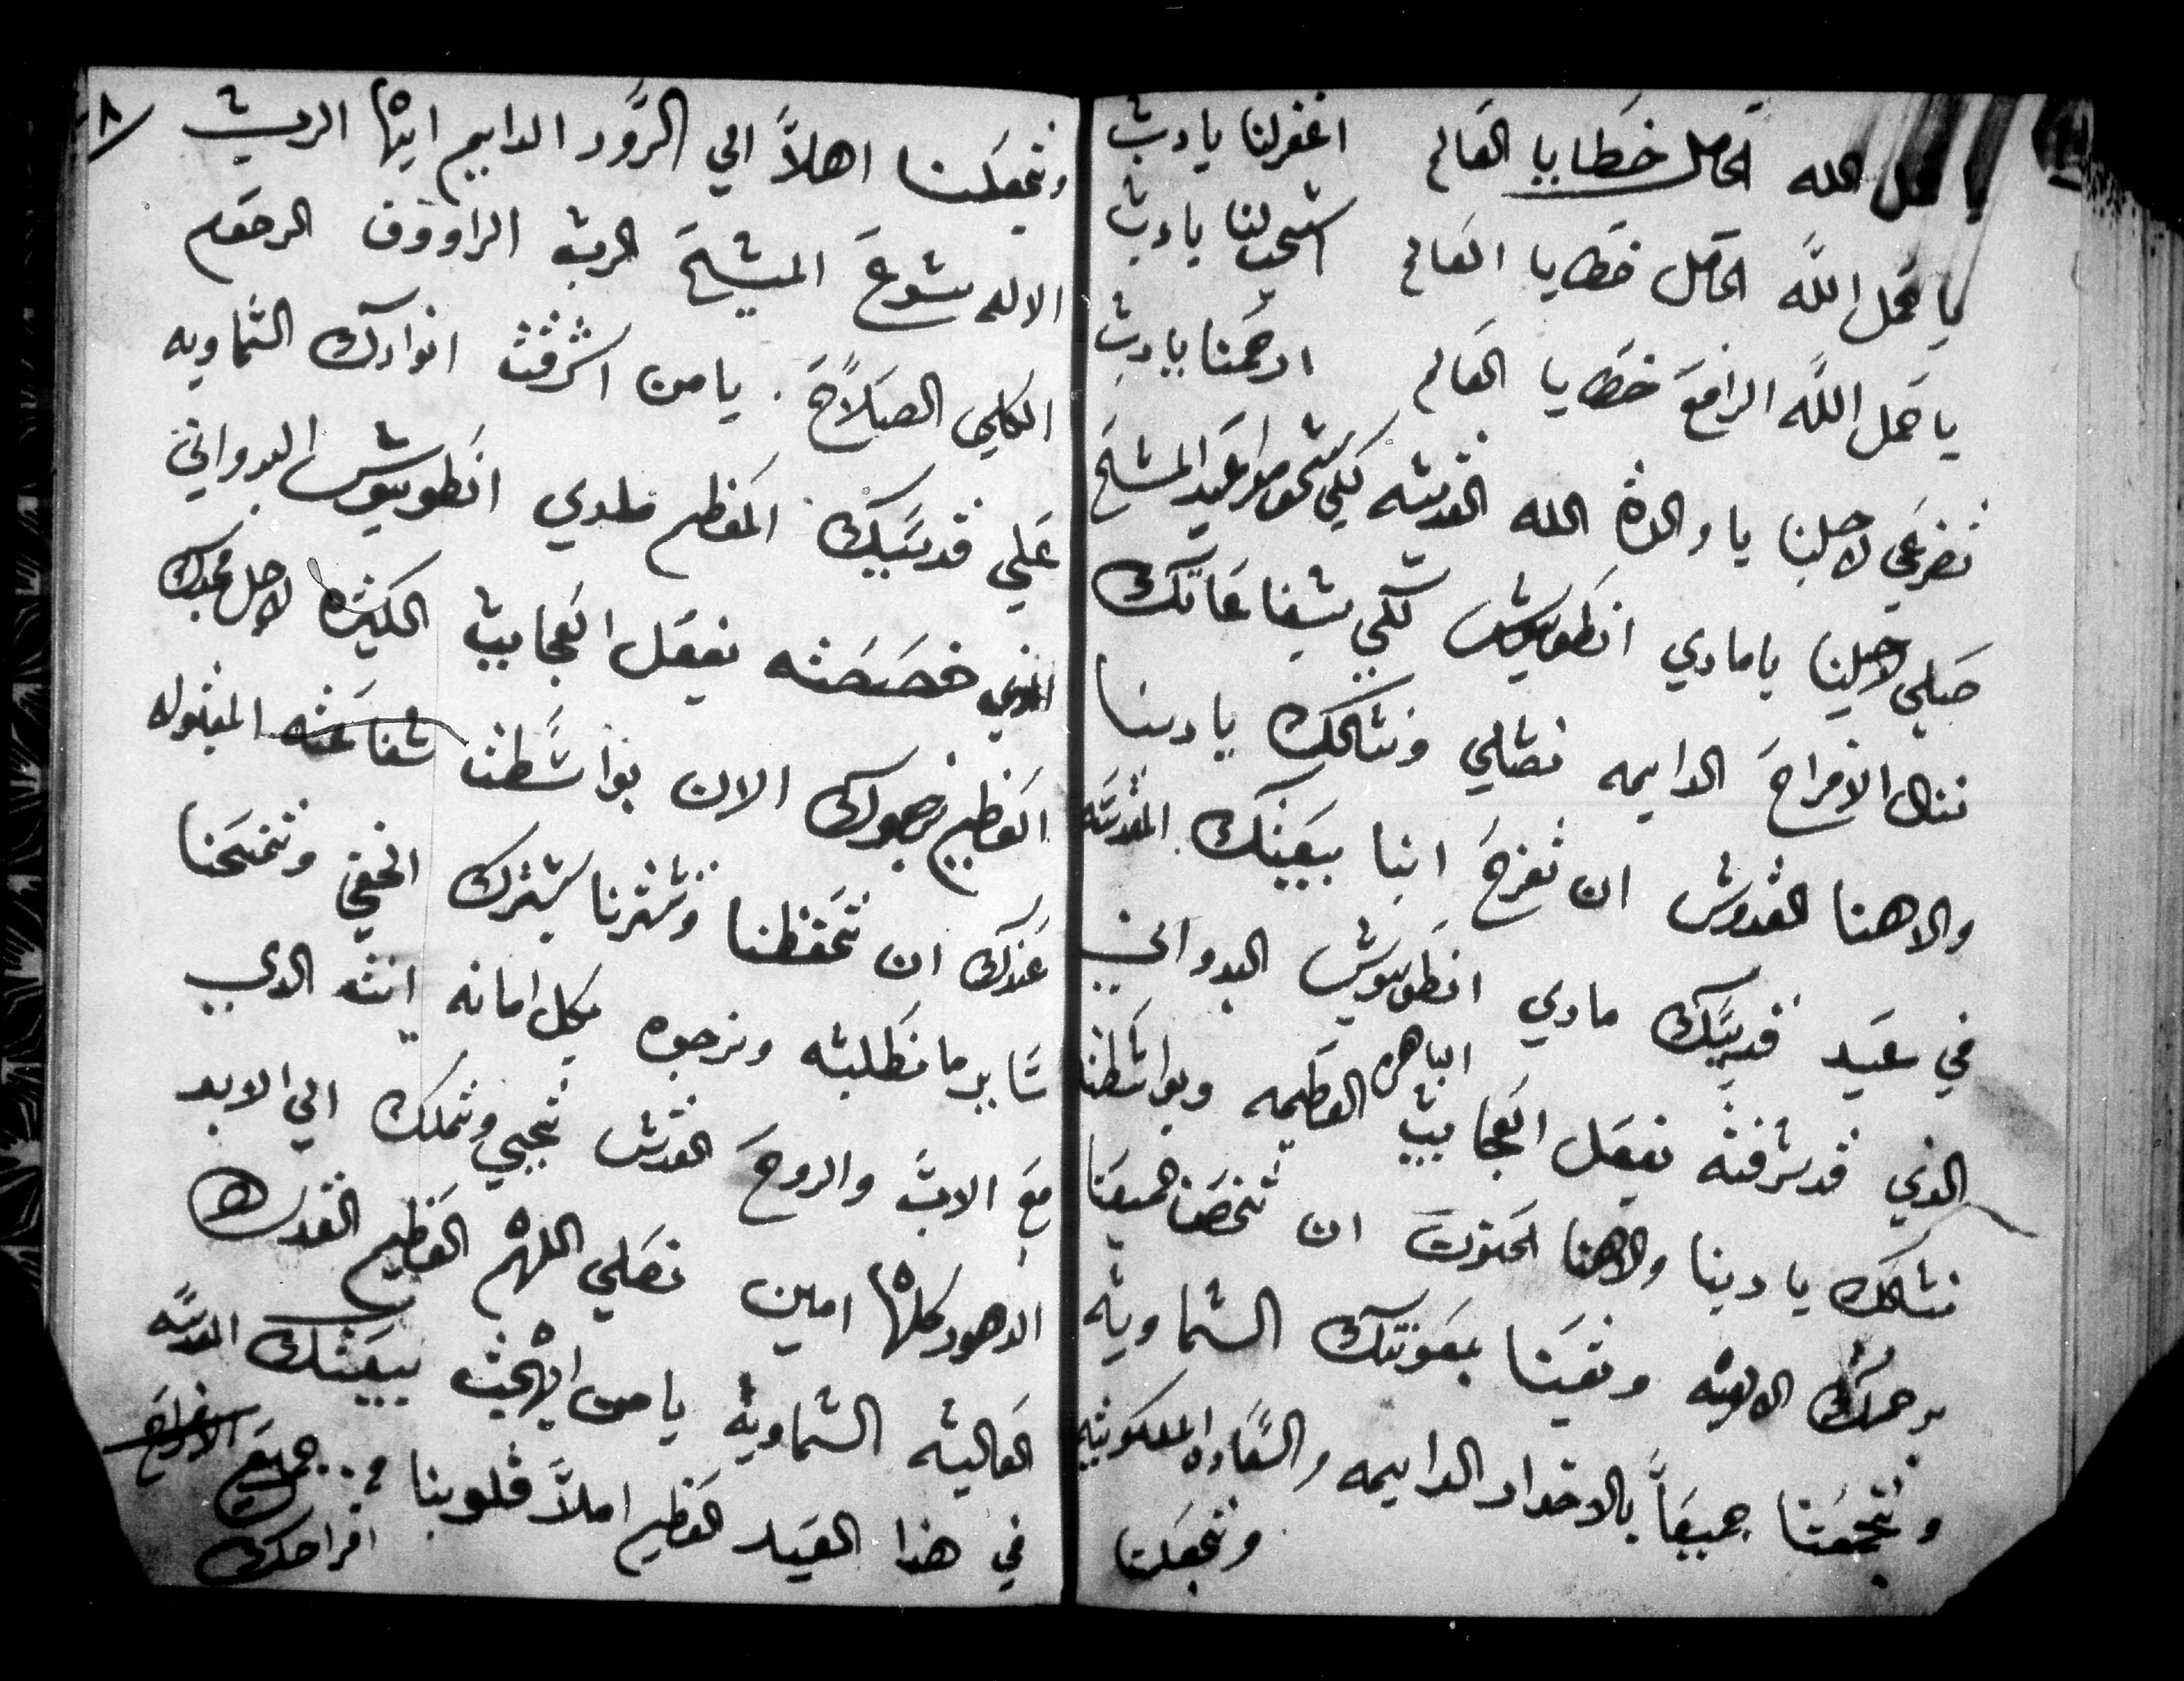 حمل الله الحامل خطايا العالم اغفرلنا يارب
يا حمل اللّه الحامل خطايا العالم استجب لنا يارب
يا حمل اللّه الرافع خطايا العالم ارحمنا يارب
تضرعي لاجلنا يا والدة الله القديسه لكي نستحق مواعيد المسيح
صلي لاجلنا يا ماري انطونيوس لكي بشفاعاتك
ننال الافراح الدايمه نصلي ونسالك ياربنا
والاهنا القدوس ان تفرح ابنا بيعتك المقدسه
في عيد قديسك ماري انطونيوس البدواني
الذي قد شرفته بفعل العجايب الباهره العظيمه وبواسطته
نسالك يا ربنا والاهنا الحنون ان تخصنا جميعنا
برحمتك الالهيه وتعيننا بمعونتك السماويه
وتجمعنا جميعاً بالاخدار الدايمه والسعاده الملكوتيه
وتجعلنا
٨
وتجعلنا اهلاً الي الدَّور الدايم ايها الرب
الاله يسوع المسيح الرب الراووف الرحوم
الكلي الصلاح . يا من اشرقت انوارك السماويه
علي قديسك المعظم ماري انطونيوس البدواني
الذي خصصته بفعل العجايب الكثيره لاجل مجدك
العظيم نرجوك الان بواسطت شفاعته المقبوله
عندك ان تحفظنا وتسترنا بسترك الخفي وتمنحنا
ساير ما نطلبه ونرجوه بكل امانه انت الدي
مع الاب والروح القدس تحيي وتملك الي الابد
الدهور كلها امين نصلي اللهم العظيم القدرك
العاليه السماويه يا من ابهجت بيعتك المقدسه
في هذا العيد العظيم املاً قلوبنا من جميع الافراح
افراحك